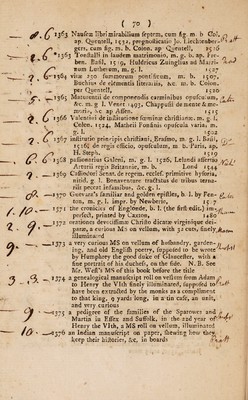 ( 70 )
8. 6 1363 Nauseæ libri mirabilium septem, cum fig. m b Col.
ap. Quentell, 1532, prognosticatio Jo. Liechtenber-
gers, cum fig. m b. Colon. ap Quentell, 1526
2. 6 1364 Tonstalli in laudem matrimonio, m. g. b. ap. Fro-
ben. Basil, 1519, Huldricus Zuinglius ad Marti-
num Lutherum, m. g. l. 1527
2. 6 vitæ 250 summorum pontificum, m. b. 1507,
Buchius de elementis litteralis, not. m b. Colon.
per Quentell 1520
5. - 1365 Mancinellus de componendis carminibus opusculum,
&c. m g l Venet 1493, Chappusii de mente & me-
moria, &c ap Asse. 1511
2. 6 1366 Valentini de institutione fœminæ christianæ, m. g. l.
Colon. 1524, Maturii Fontani opuscula varia, m.
g. l. 1540
2. 6 1367 institutio principis christiani, Erasmo, m. g. l. Basil,
1516 de regis officio, opusculum, m b. Paris, ap.
H. Steph. 1519
6. 6 1368 passionarius Galeni, m g. l. 1526, Lelandi assertio
Arturii regis Britanniæ, m b. Lond 1544
2. 6 1369 Cassandori Senat. de regem. eccles. primitivæ hystoria,
nitid. g. l. Bonaventure tractatus de tribus terna-
riis peccat infamibus, &c. g. l.
8. - 1370 Guevara's familiar and golden epistles, b l. by Fen-
ton, m. g. l. impr by Newberie, 1577
1. 10. - 1371 the cronicles of Englonde, b l. (the first edit.) im-
perfect, printed by Caxton, 1480
2. 2. - 1372 orationes devotissime Christo dicatæ virginique dei-
paræ, a curious MS on vellum, with 32 cuts, finely
illuminated
9. - 1373 a very curious MS on vellum of husbandry, garden-
ing, and old English poetry, supposed to be wrote
by Humphrey the good duke of Gloucester, with a
fine portrait of his duchess, on the side. N. B. See
Mr. West's MS of this book before the title
3. 3. - 1374 a genealogical manuscript roll on vellum from Adam
to Henry the VIth finely illuminated, supposed to
have been extracted by the monks as a compliment
to that king, 9 yards long, in a tin case, an unit,
and very curious
9 - 1375 a pedigree of the families of the Sparowes and
Martin in Essex and Suffolk, in the 22d year of
Henry the VIth, a MS roll on vellum, illuminated
10. - 1376 an Indian manuscript on paper, shewing how they
keep their histories, &c. in boards